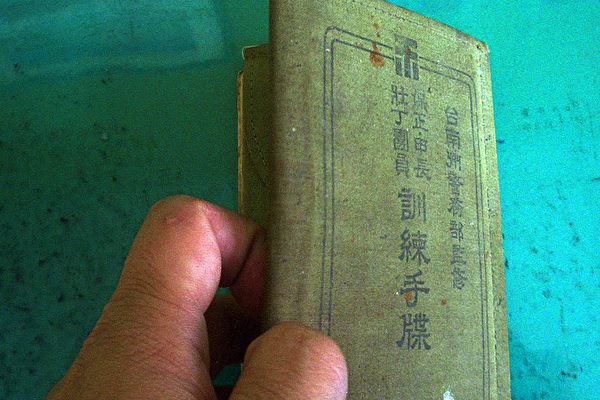 台南州警務部監修
保正甲長
壯丁團員
訓練手牒